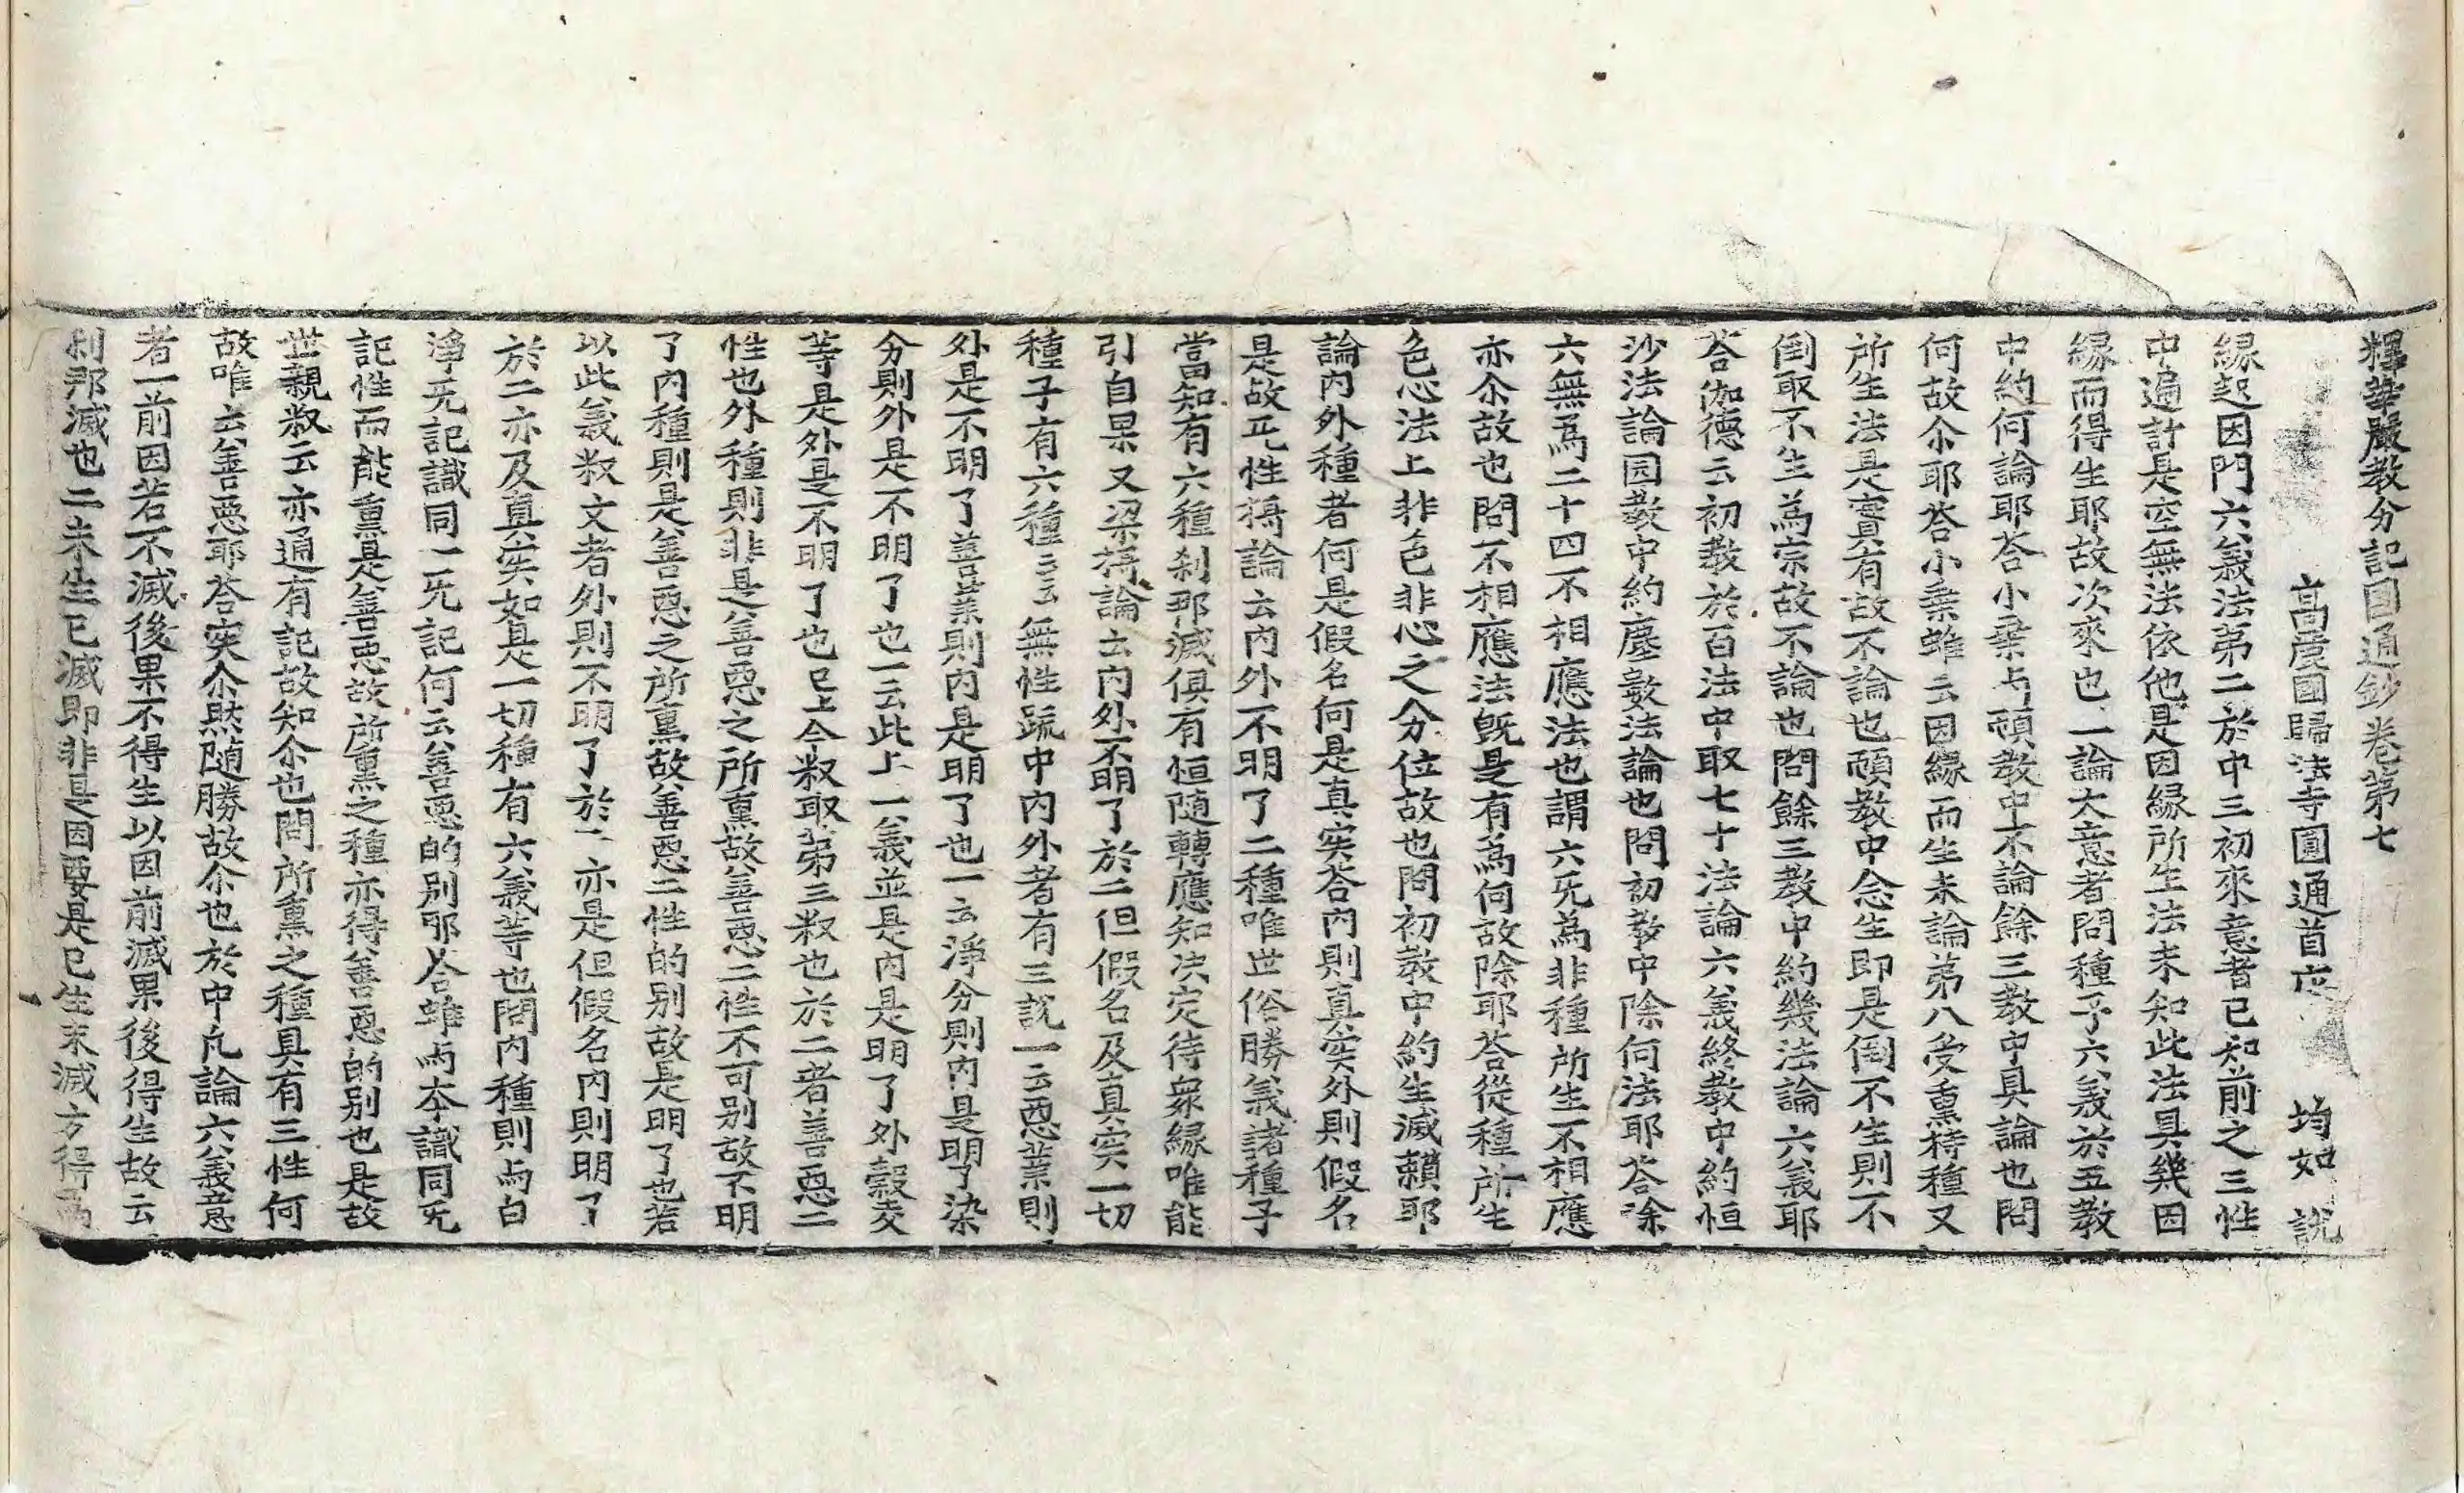 釋華嚴教分記圓通鈔卷第七
高麗國歸法寺圓通首座 均如 說
緣起因門六義法第二於中三初來意者已知前之三性
中遍計是空無法依他是因緣所生法未知此法具幾因
緣而得生耶故次來也一論大意者問種子六義於五教
中約何論耶荅小乗与頓教中不論餘三教中具論也問
何故尒耶荅小乗雖云因緣而生未論苐八受熏持種又
所生法是實有故不論也頓教中念生即是倒不生則不
倒取不生爲宗故不論也問餘三教中約幾法論六義耶
荅伽德云初教於百法中取七十法論六義終教中約恒
沙法論园教中約塵數法論也問初教中除何法耶荅除
六無爲二十四不相應法也謂六旡爲非種所生不相應
亦尒故也問不相應法旣是有爲何故除耶荅從種所生
色心法上非色非心之分位故也問初教中約生滅賴耶
論內外種者何是假名何是真实荅內則真实外則假名
是故旡性攝論云內外不明了二種唯世俗勝義諸種子
當知有六種刹那滅俱有恒随轉應知决定待衆緣唯能
引自果又梁攝論云內外不明了於二但假名及真实一切
種子有六種云云無性䟽中內外者有三說一云惡業則
外是不明了善業則內是明了也一云淨分則內是明了染
分則外是不明了也一云此上一義並是內是明了外穀麦
等是外是不明了也已上今㪅取苐三㪅也於二者善惡二
性也外種則非是善惡之所熏故善惡二性不可别故不明
了內種則是善惡之所熏故善惡二性的别故是明了也若
以此義㪅文者外則不明了於二亦是但假名內則明了
於二亦及真实如是一切種有六義等也問內種則与白
淨旡記識同一旡記何云善惡的别耶荅雖与本識同旡
記性而能熏是善惡故所熏之種亦得善惡的别也是故
世親㪅云亦通有記故知尒也問所熏之種具有三性何
故唯云善惡耶荅实尒然随勝故尒也於中凡論六義意
者一前因若不滅後果不得生以因前滅果後得生故云
刹那滅也二未生已滅即非是因要是已生未滅方得爲